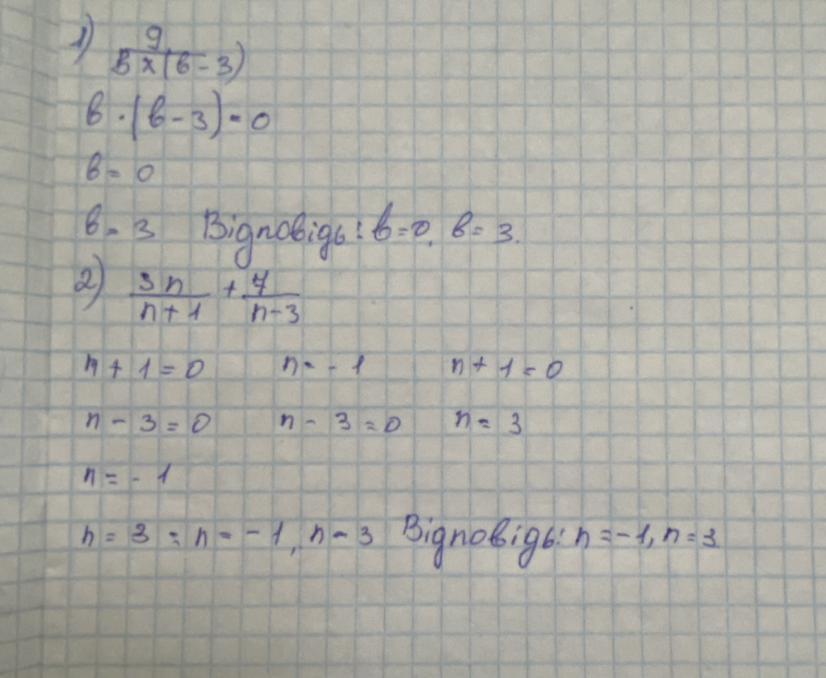 1) 9
в × (в - 3)
в · (в - 3) = 0
в = 0
в = 3 Відповідь: в = 0, в = 3.
2) 3n / n + 1 + 7 / n - 3
n + 1 = 0 n = - 1 n + 1 = 0
n - 3 = 0 n - 3 = 0 n = 3
n = - 1
n = 3 : n = - 1, n = 3 Відповідь: n = -1, n = 3